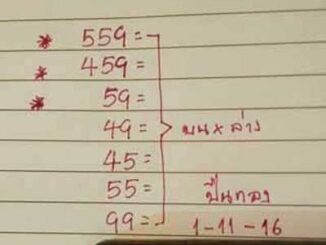 * 559 =
* 459 =
* 59 =
49 = บน x ล่าง
45 =
55 = ปืนทอง
99 = 1-11-16